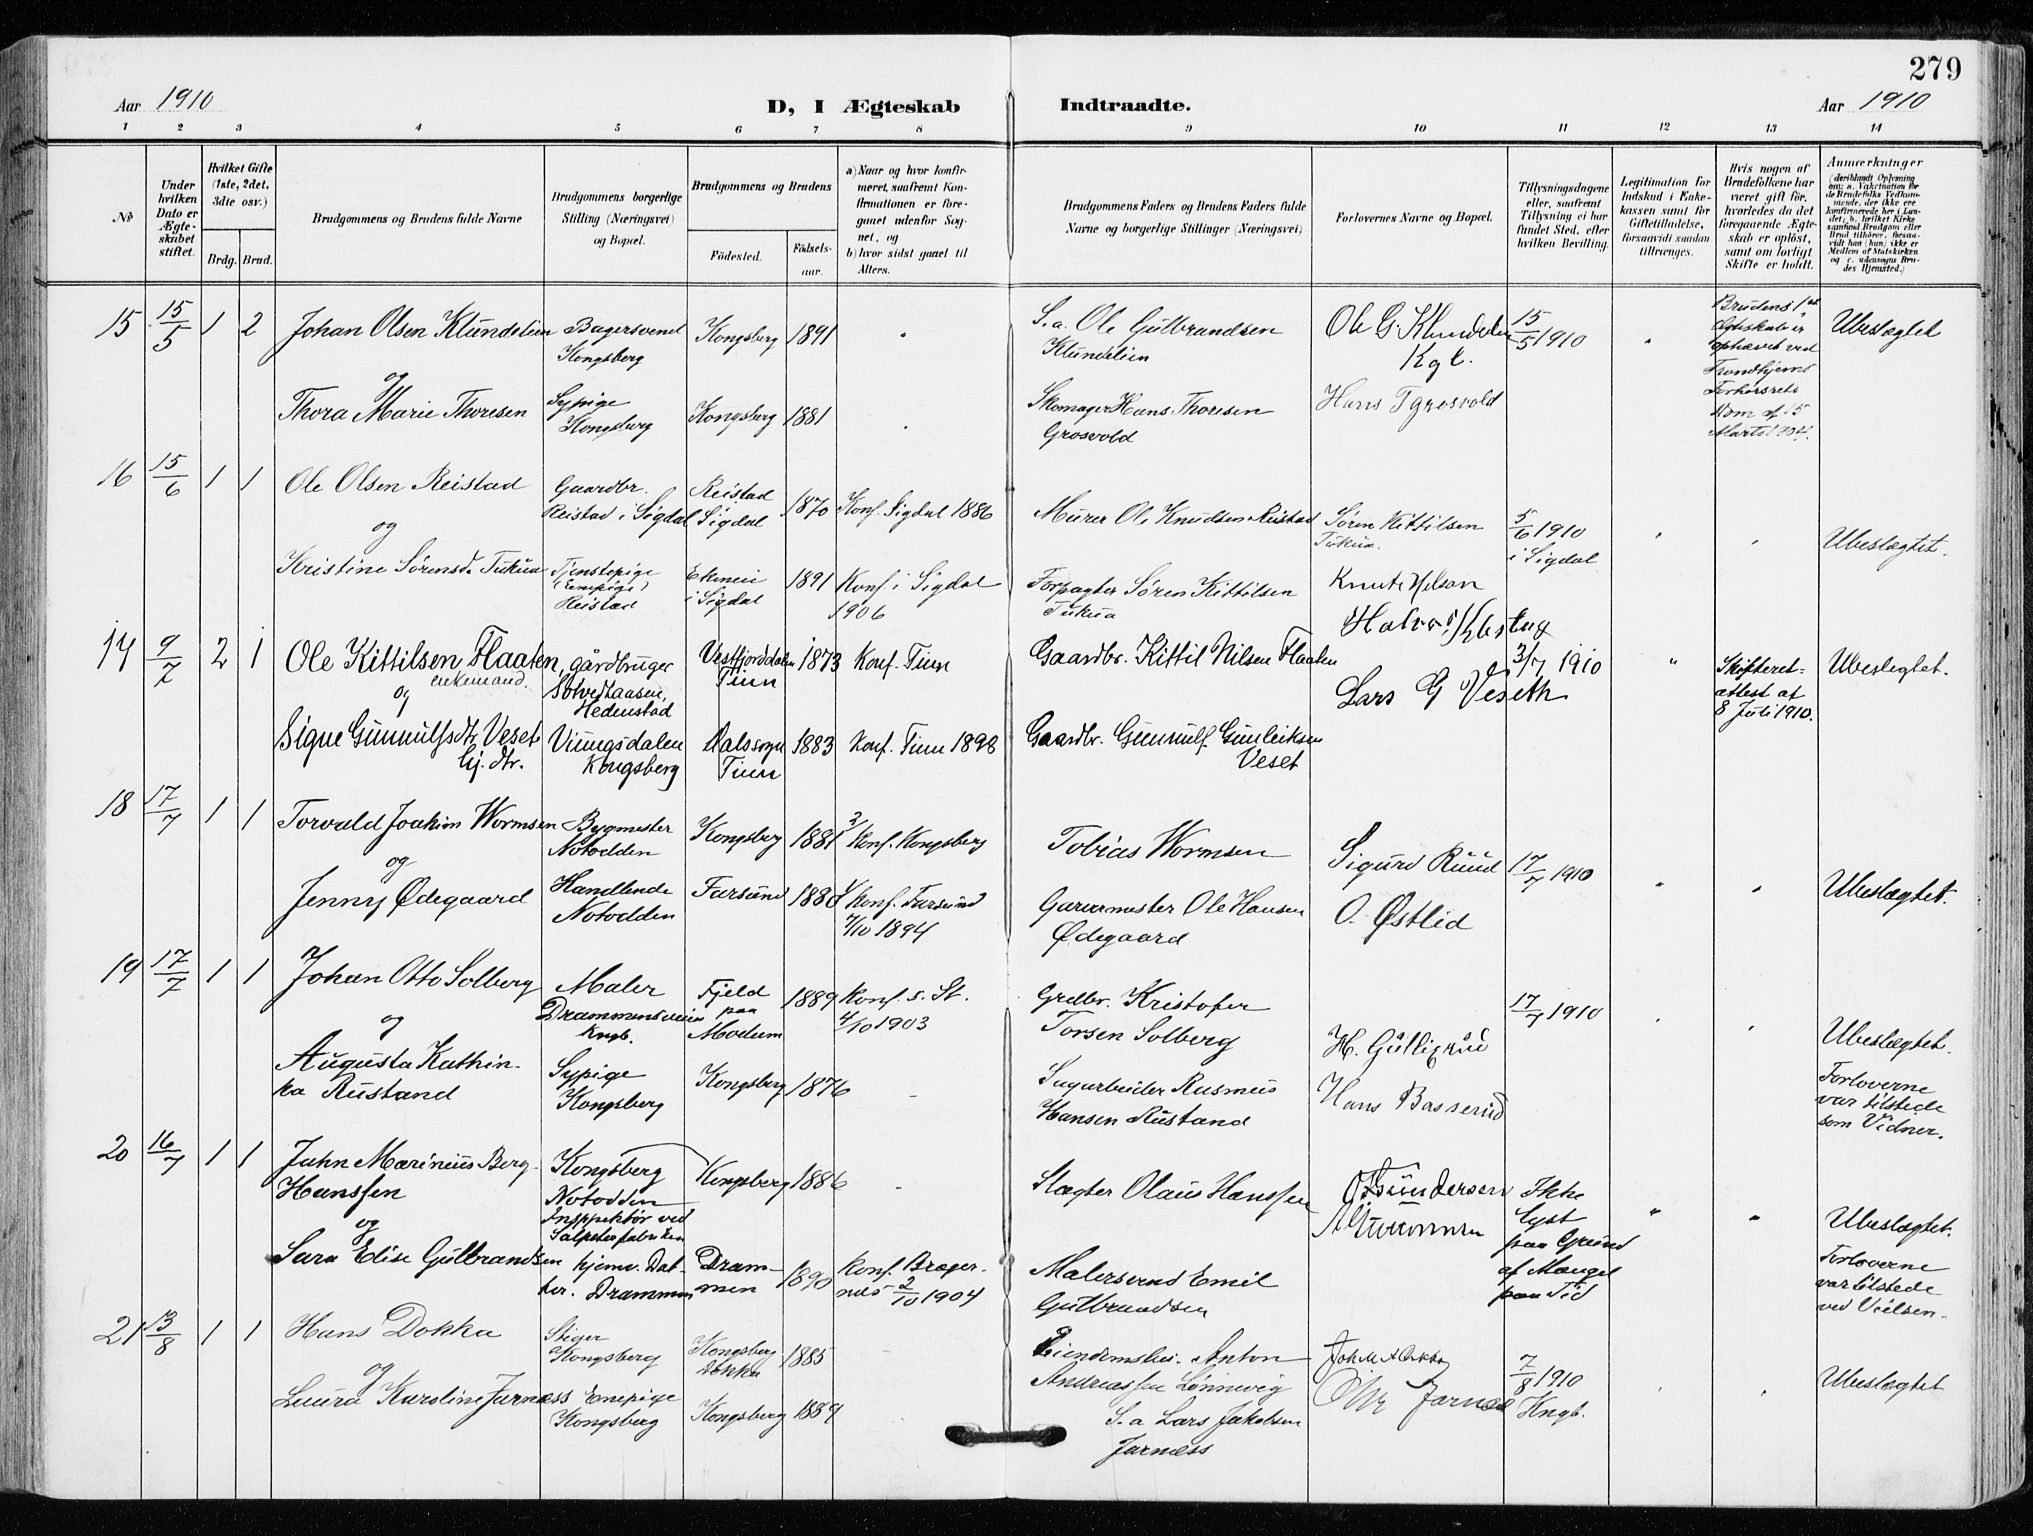 279
Aar 1910
D, I Ægteskab Indtraadte.
Aar 1910
1 2 3 4 5 6 7 8 9 10 11 12 13 14
No
Under hvilken Dato er Ægteskabet stiftet.
Hvilket Gifte (1ste, 2det, 3die osv.)
Brdg. Brud.
Brudgommens og Brudens fulde Navne
Brudgommens borgerlige Stilling (Næringsvei) og Bopæl.
Brudgommens og Brudens
Födested.
Födsels-aar.
a) Naar og hvor konfirmeret, saafremt Konfirmationen er foregaaet udenfor Sognet, og
b) hvor sidst gaaet til Alters.
Brudgommens Faders og Brudens Faders fulde Navne og borgerlige Stillinger (Næringsvei)
Forlovernes Navne og Bopæl.
Tillysningsdagene eller, saafremt Tillysning ei har fundet Sted, efter hvilken Bevilling.
Legitimation for Indskud i Enkekassen samt for Giftetilladelse, forsaavidt saadan tiltrænges.
Hvis nogen af Brudefolkene har været gift før, hvorledes da det foregaaende Ægteskab er oplöst, samt om lovligt Skifte er holdt.
Anmærkninger (deriblandt Oplysning om: a. Vakcination for de Brudefolks Vedkommende, der ikke ere konfirmerede her i Landet; b. hvilket Kirkesamfund Brudgom eller Brud tilhører, forsaavidt han (hun) ikke er Medlem af Statskirken og c. udensogns Brudes Hjemsted.)
15 15/5 1 2 Johan Olsen Klundelien Bagersvend Kongsberg Kongsberg 1891
S. a. Ole Gulbrandsen Klundelien Ole G. Klundelien Kgb. 15/5 1910
Brudens 1ste Ægteskab er ophævet ved Trondhjems Forhørsrets Dom af 15 Marts 1904. Ubeslægtet
og
Thora Marie Thoresen Sypige Kongsberg Kongsberg 1881
Skomager Hans Thoresen Grosvold Hans T Grosvold
16 15/6 1 1 Ole Olsen Reistad Gaardbr. Reistad i Sigdal Reistad Sigdal 1870 Konf. Sigdal 1886
Murer Ole Knudsen Reistad Søren Kittilsen Tukua. 5/6 1910 i Sigdal Ubeslægtet.
og
Kristine Sørensd. Tukua Tjenstepige Reistad i Sigdal 1891 Konf. i Sigdal 1906
Forpagter Søren Kittilsen Tukua Knut Nelson
17 9/7 2 1 Ole Kittilsen Flaaten, enkemand. gårdbruger Hedenstad Vestfjorddalen Tinn 1873 Konf. Tinn
Gaardbr. Kittil Nilsen Flaaten 3/7 1910 Skifteret-attest af 8 Juli 1910. Ubeslegtet.
og
Signe Gunnulfsdtr. Veset Gj. dtr. Vinngsdalen Kongsberg Dalssogn Tinn 1883 Konf. Tinn 1898
Gaardbr. Gunnulf Gunleiksen Veset Lars G Veseth
18 17/7 1 1 Torvald Joakim Wormsen Bygmester Notodden Kongsberg 1881 Konf. Kongsberg
Tobias Wormsen Sigurd Ruud 17/7 1910 Ubeslægtet.
og
Jenny Ødegaard Handlende Notodden Farsund 1880 Konf. Farsund 7/10 1894
Garvermester Ole Hansen Ødegaard O. Østlid
19 17/7 1 1 Johan Otto Solberg Maler Drammensveien Kngb. Fjeld paa Modum 1889 Konf. s. St. 4/10 1903
Grdbr. Kristofer Torsen Solberg H. Gulligrud 17/7 1910 Ubeslægtet.
og
Augusta Kathinka Rustand Sypige Kongsberg Kongsberg 1876
Sagarbeider Rasmus Hansen Rustand Hans Basserud
Forloverne var tilstede som Vidner.
20 16/7 1 1 John Marinius Berg-Hanssen Kongsberg Notodden Inspektør ved Salpeterfabriken Kongsberg 1886
Slagter Olaus Hanssen O Gundersen Ikke lyst paa Grund af Mangel paa Tid Ubeslægtet.
og
Sara Elise Gulbrandsen hjemv. Datter. Drammen Drammen 1890 Konf. Bragernes 2/10 1904
Malersvend Emil Gulbrandsen
Forloverne var tilstede ved Vielsen.
21 13/8 1 1 Hans Dokka Stiger Kongsberg Kongsberg Dokka 1885
Eiendomsbes. Anton Andreassen Lønnevig 7/8 1910 Kngb. Ubeslægtet
og
Laura Karoline Jarnæss Sypige Kongsberg Kongsberg 1889
S. a Lars Jakobsen Jarnæss